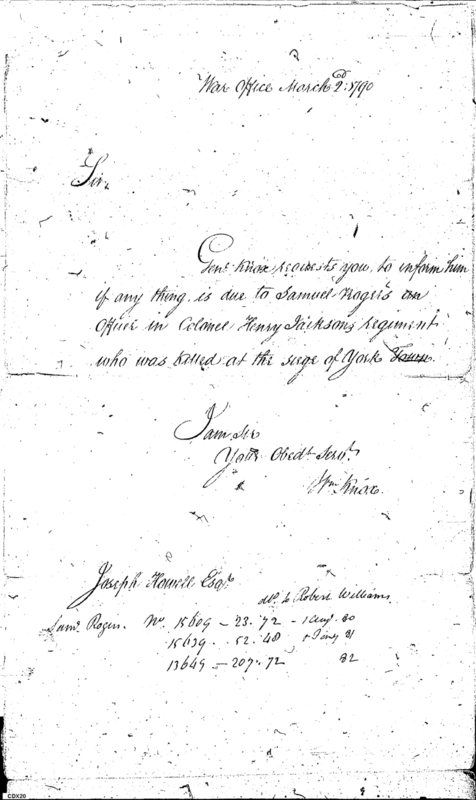 War Office March 2d: 1790
Sir,
Genl. Knox requests you to inform him
if any thing is due to Samuel Rogers an
Officer in Colonel Henry Jacksons regiment
who was killed at the siege of York Town.
I am Sir
Your Obedt. Servt.
Wm Knox.
Joseph Howell Esqr
to Robert Williams
Saml. Rogers. No. 15609 - 23.72 - 1 Augt. 80
15639. . 52.48 1 Jany 81
13649 - 207.72 82
CDX20